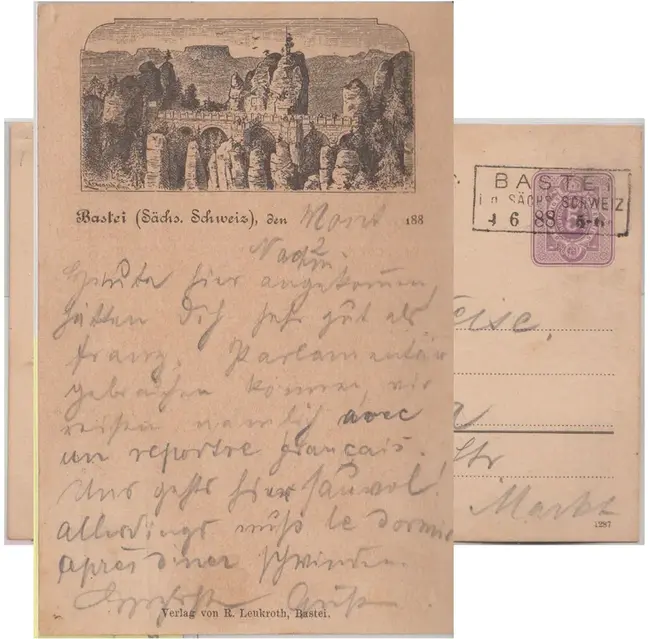 Bastei (Sächs. Schweiz), den Mont 188
Nachm.
Heute hier angekommen,
hätten Dich sehr gut als
franz. Parlamentär
gebrauchen können, wir
reisen nämlich avec
un reportre français.
Uns gehts hier sauwol!
Allerdings muß le dormir
après diner schwinden.
Verlag von R. Leukroth, Bastei.
BASTEI
i.d. SÄCHS. SCHWEIZ
4 6 88 5-6
5
Str
Markt
1287